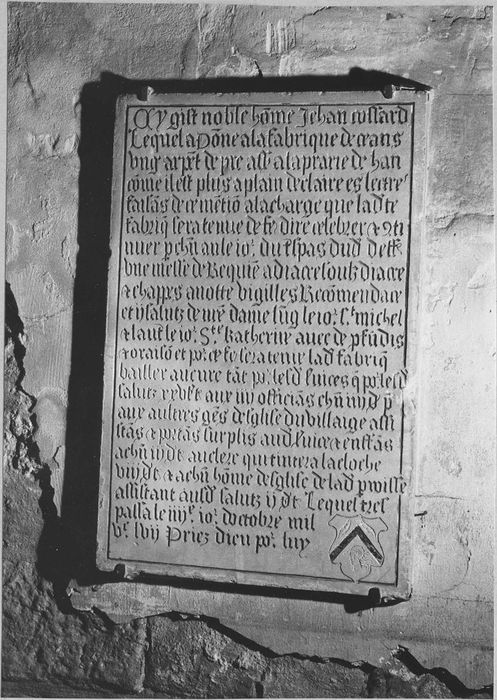 Cy gist noble hōme Jehan cossard
Lequel a dōne a la fabrique de ceans
vng arpēt de pre assi a la prarie de han
cōme il est plus a plain declaire es lectres
faisās de ce mētiō a la charge que lad te
fabriq̄ sera tenue de fe dire celebrer & ɔti
nuer p chūn an le ior du t̄spas dud deff
vne messe de Requiē a diacre soubz diacre
& chappes a notte vigilles Recōmendace
et ij salutz de nr̄e dame lūg le ior St michel
& laut̄ le ior Ste Katherine auec de p̄fūdis
& oraisō et por ce fe sera tenue lad fabriq̄
bailler aucure tāt por lesd s̄uices q̄ por lesd
salutz
aux aultres gēs desglise du villaige assi
stās & portās surplis aud s̄uice & enffās
achūn ij dt au clerc qui tintera la cloche
viij dt & achūn hōme desglise de lad p̄roisse
assistant ausd salutz ij dt Lequel tres
passa le iiije ior doctobre mil
vc lvij Priez dieu por luy